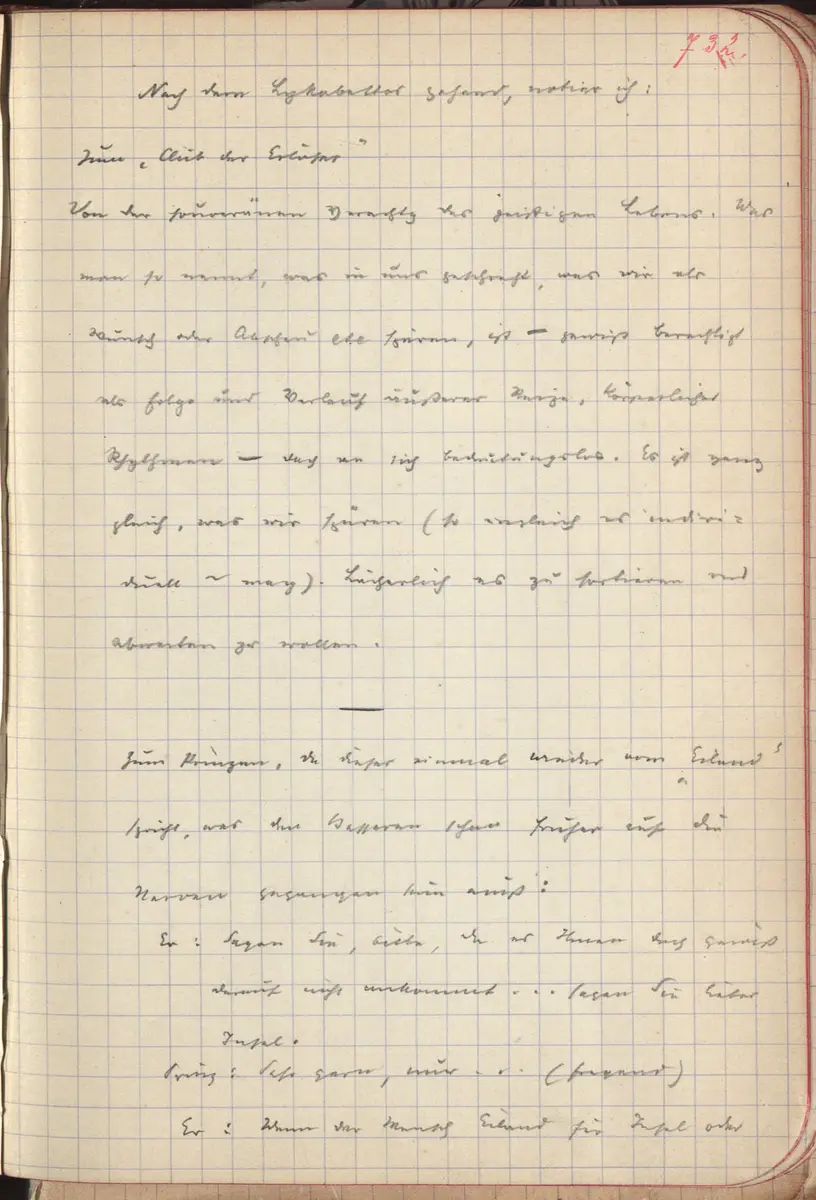 732.
Nach dem Lykabettos gehend, notier ich:
Zum „Club der Erlöser“
Von der souveränen Verachtg des geistigen Lebens. Was
man so nennt, was in uns geschieht, was wir als
Wunsch oder Abscheu etc spüren, ist — gewiß berechtigt
als Folge und Verlauf äußerer Reize, körperlicher
Rhythmen — doch an sich bedeutungslos. Es ist ganz
gleich, was wir spüren (so ungleich es indivi=
duell ~ mag). Lächerlich es zu sortieren und
abwerten zu wollen.
—
Zum Prinzen, da dieser einmal wieder vom „Eiland“
spricht, was den Besseren schon früher auf die
Nerven gegangen sein muß:
Er: Sagen Sie, bitte, da es Ihnen doch gewiß
darauf nicht ankommt... sagen Sie lieber
Insel.
Prinz: Sehr gern, nur... (fragend)
Er: Wenn der Mensch Eiland für Insel oder